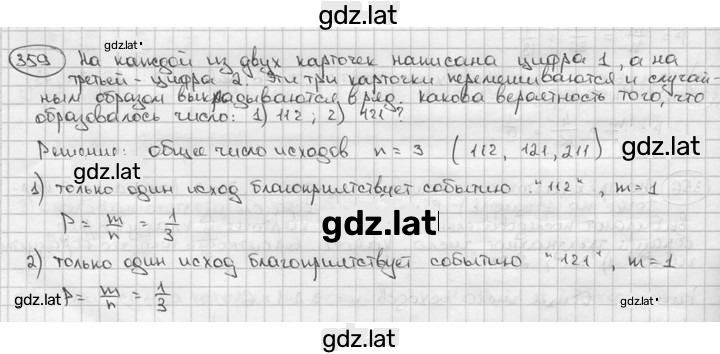 gdz.lat
gdz.lat
359 На каждой из двух карточек написана цифра 1, а на
третьей - цифра 2. Эти три карточки перемешиваются и случай-
ным образом выкладываются в ряд. какова вероятность того, что
образовалось число: 1) 112; 2) 121?
Решение: общее число исходов n = 3 (112, 121, 211)
gdz.lat
1) только один исход благоприятствует событию "112", m=1
P = m/n = 1/3
gdz.lat
2) только один исход благоприятствует событию "121", m=1
gdz.lat
P = m/n = 1/3
gdz.lat
gdz.lat